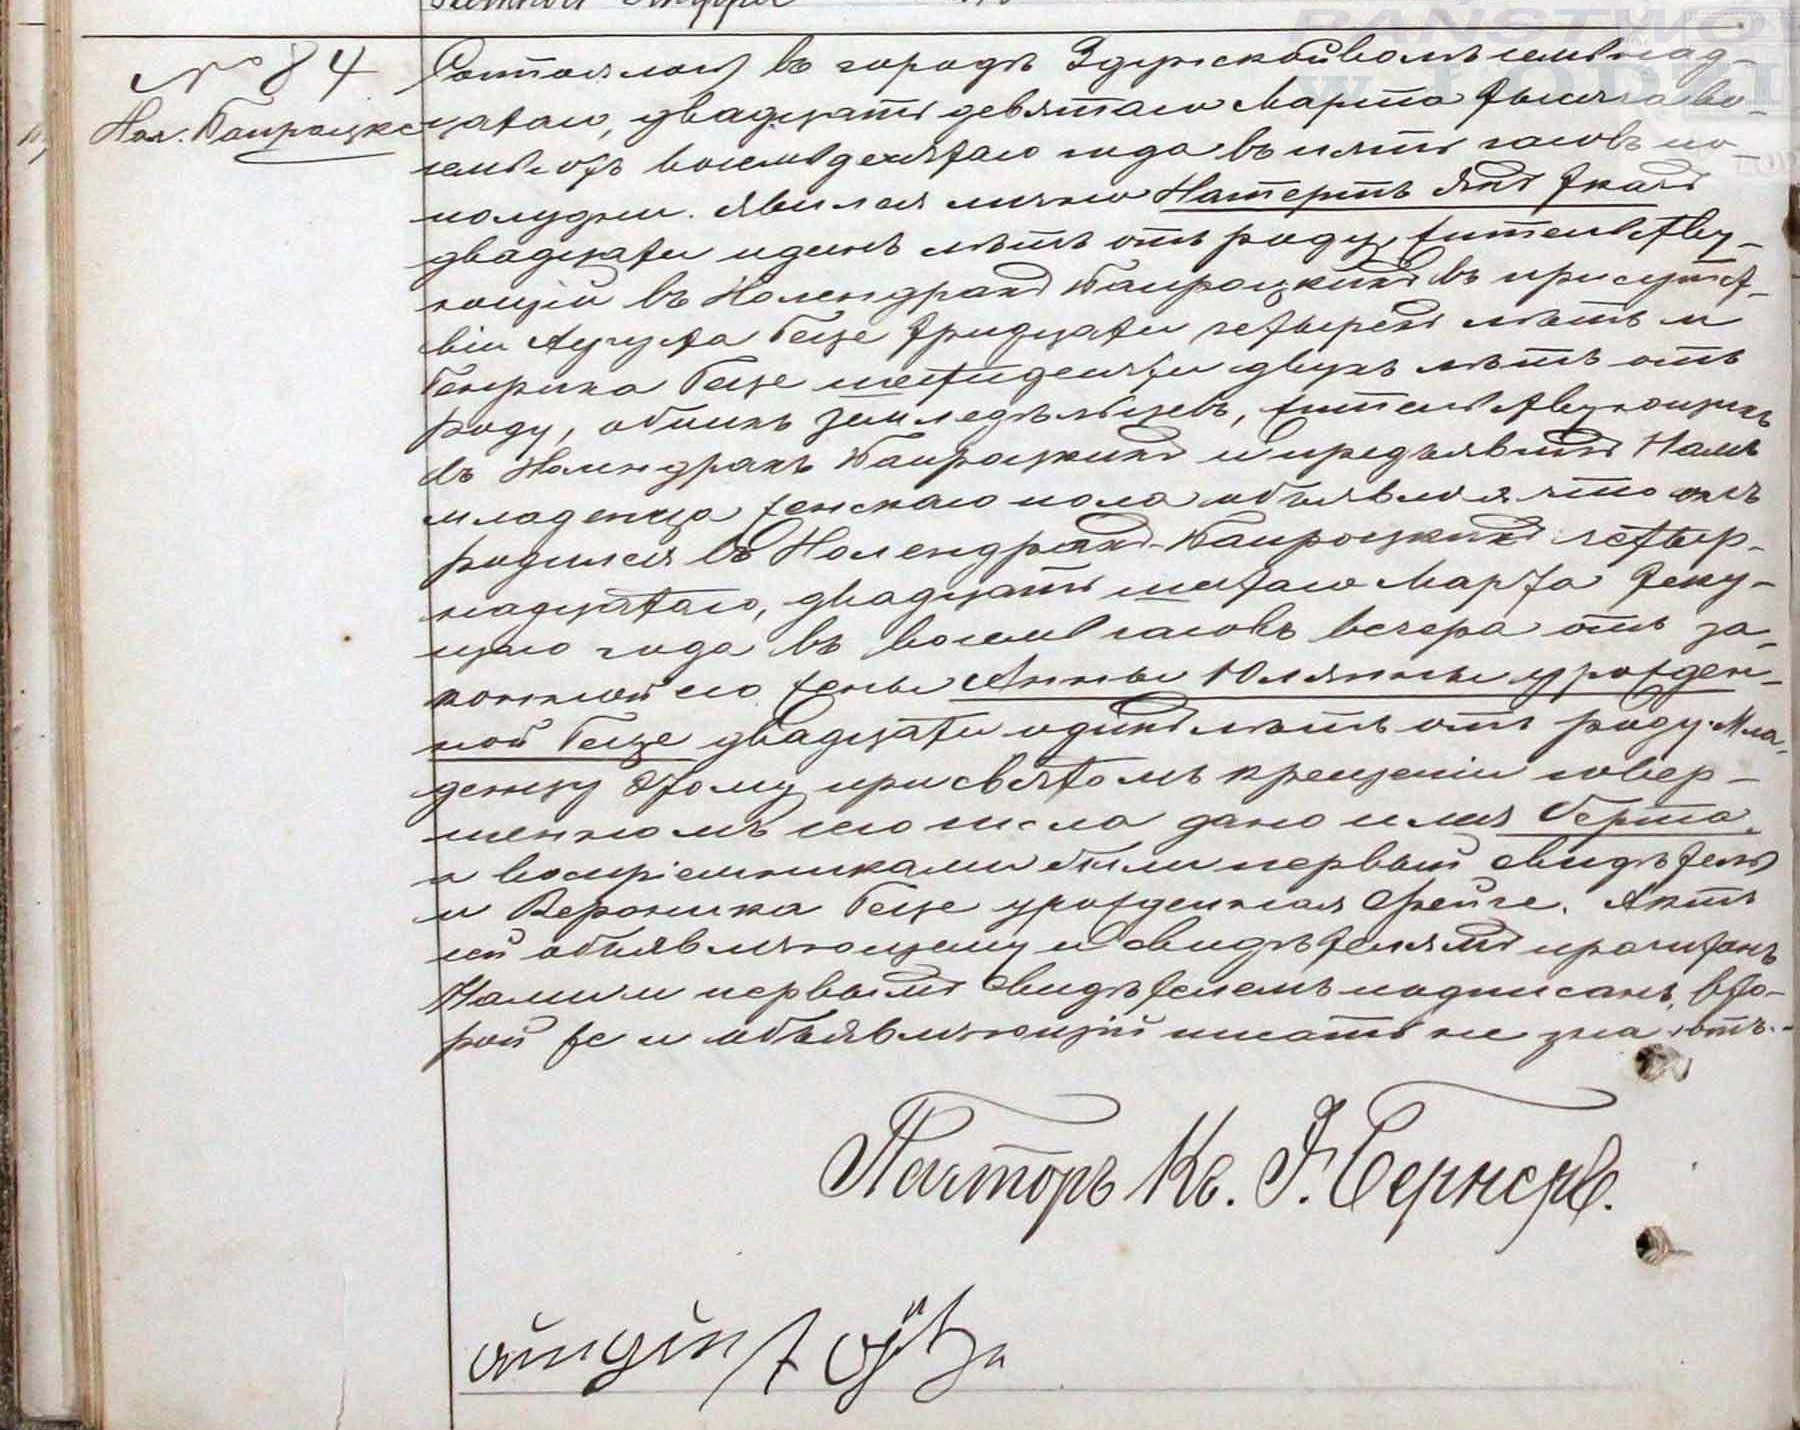 № 84
Гол. Папроцке
Состоялось въ городѣ Здунской волѣ семнад-
цатаго, двадцать девятаго Марта тысяча во-
семьсотъ восемьдесятаго года въ пять часовъ по
полудни. Явился лично
двадцати одинъ лѣтъ отъ роду, жительству-
ющій въ Голендрахъ Папроцкихъ въ присутст-
віи Августа Геце тридцати четырехъ лѣтъ и
Генрика Геце шестидесяти двухъ лѣтъ отъ
роду, обоихъ земледѣльцевъ, жительствующихъ
въ Голендрахъ Папроцкихъ и предъявилъ Намъ
младенца женскаго пола объявляя что онъ
родился въ Голендрахъ-Папроцкихъ четыр-
надцатаго, двадцать шестаго Марта теку-
щаго года въ восемь часовъ вечера отъ за-
конной его жены Анны Юлянны урожден-
ной Геце двадцати одинъ лѣтъ отъ роду. Мла-
денцу этому при святомъ крещеніи совер-
шенномъ сего числа дано имя Берта,
а воспріемниками были первый свидѣтель
и Вероника Геце урожденная Фейге. Актъ
сей объявляющему и свидѣтелямъ прочитанъ
Нами и первымъ свидѣтелемъ подписанъ, вто-
рой же и объявляющій писать не знаютъ.-
Пасторъ Кс. Э. Бернеръ.
August Götze